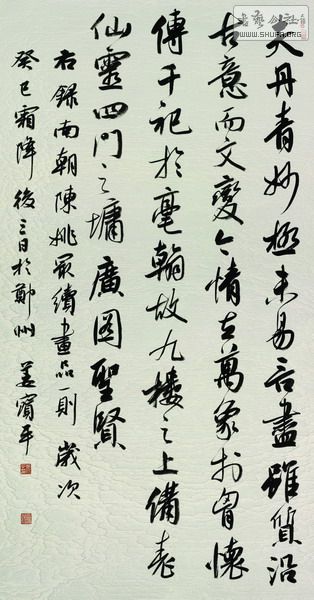 夫丹青妙極未易言盡雖質沿
古意而文變今情立萬象於胷懷
傳千祀於毫翰故九樓之上備表
仙靈四門之墉廣圖聖賢
右録南朝陳姚最續畫品一則 歲次
癸巳霜降後三日於鄭州 姜寶平
書藝公社
WWW.SHUFA.ORG